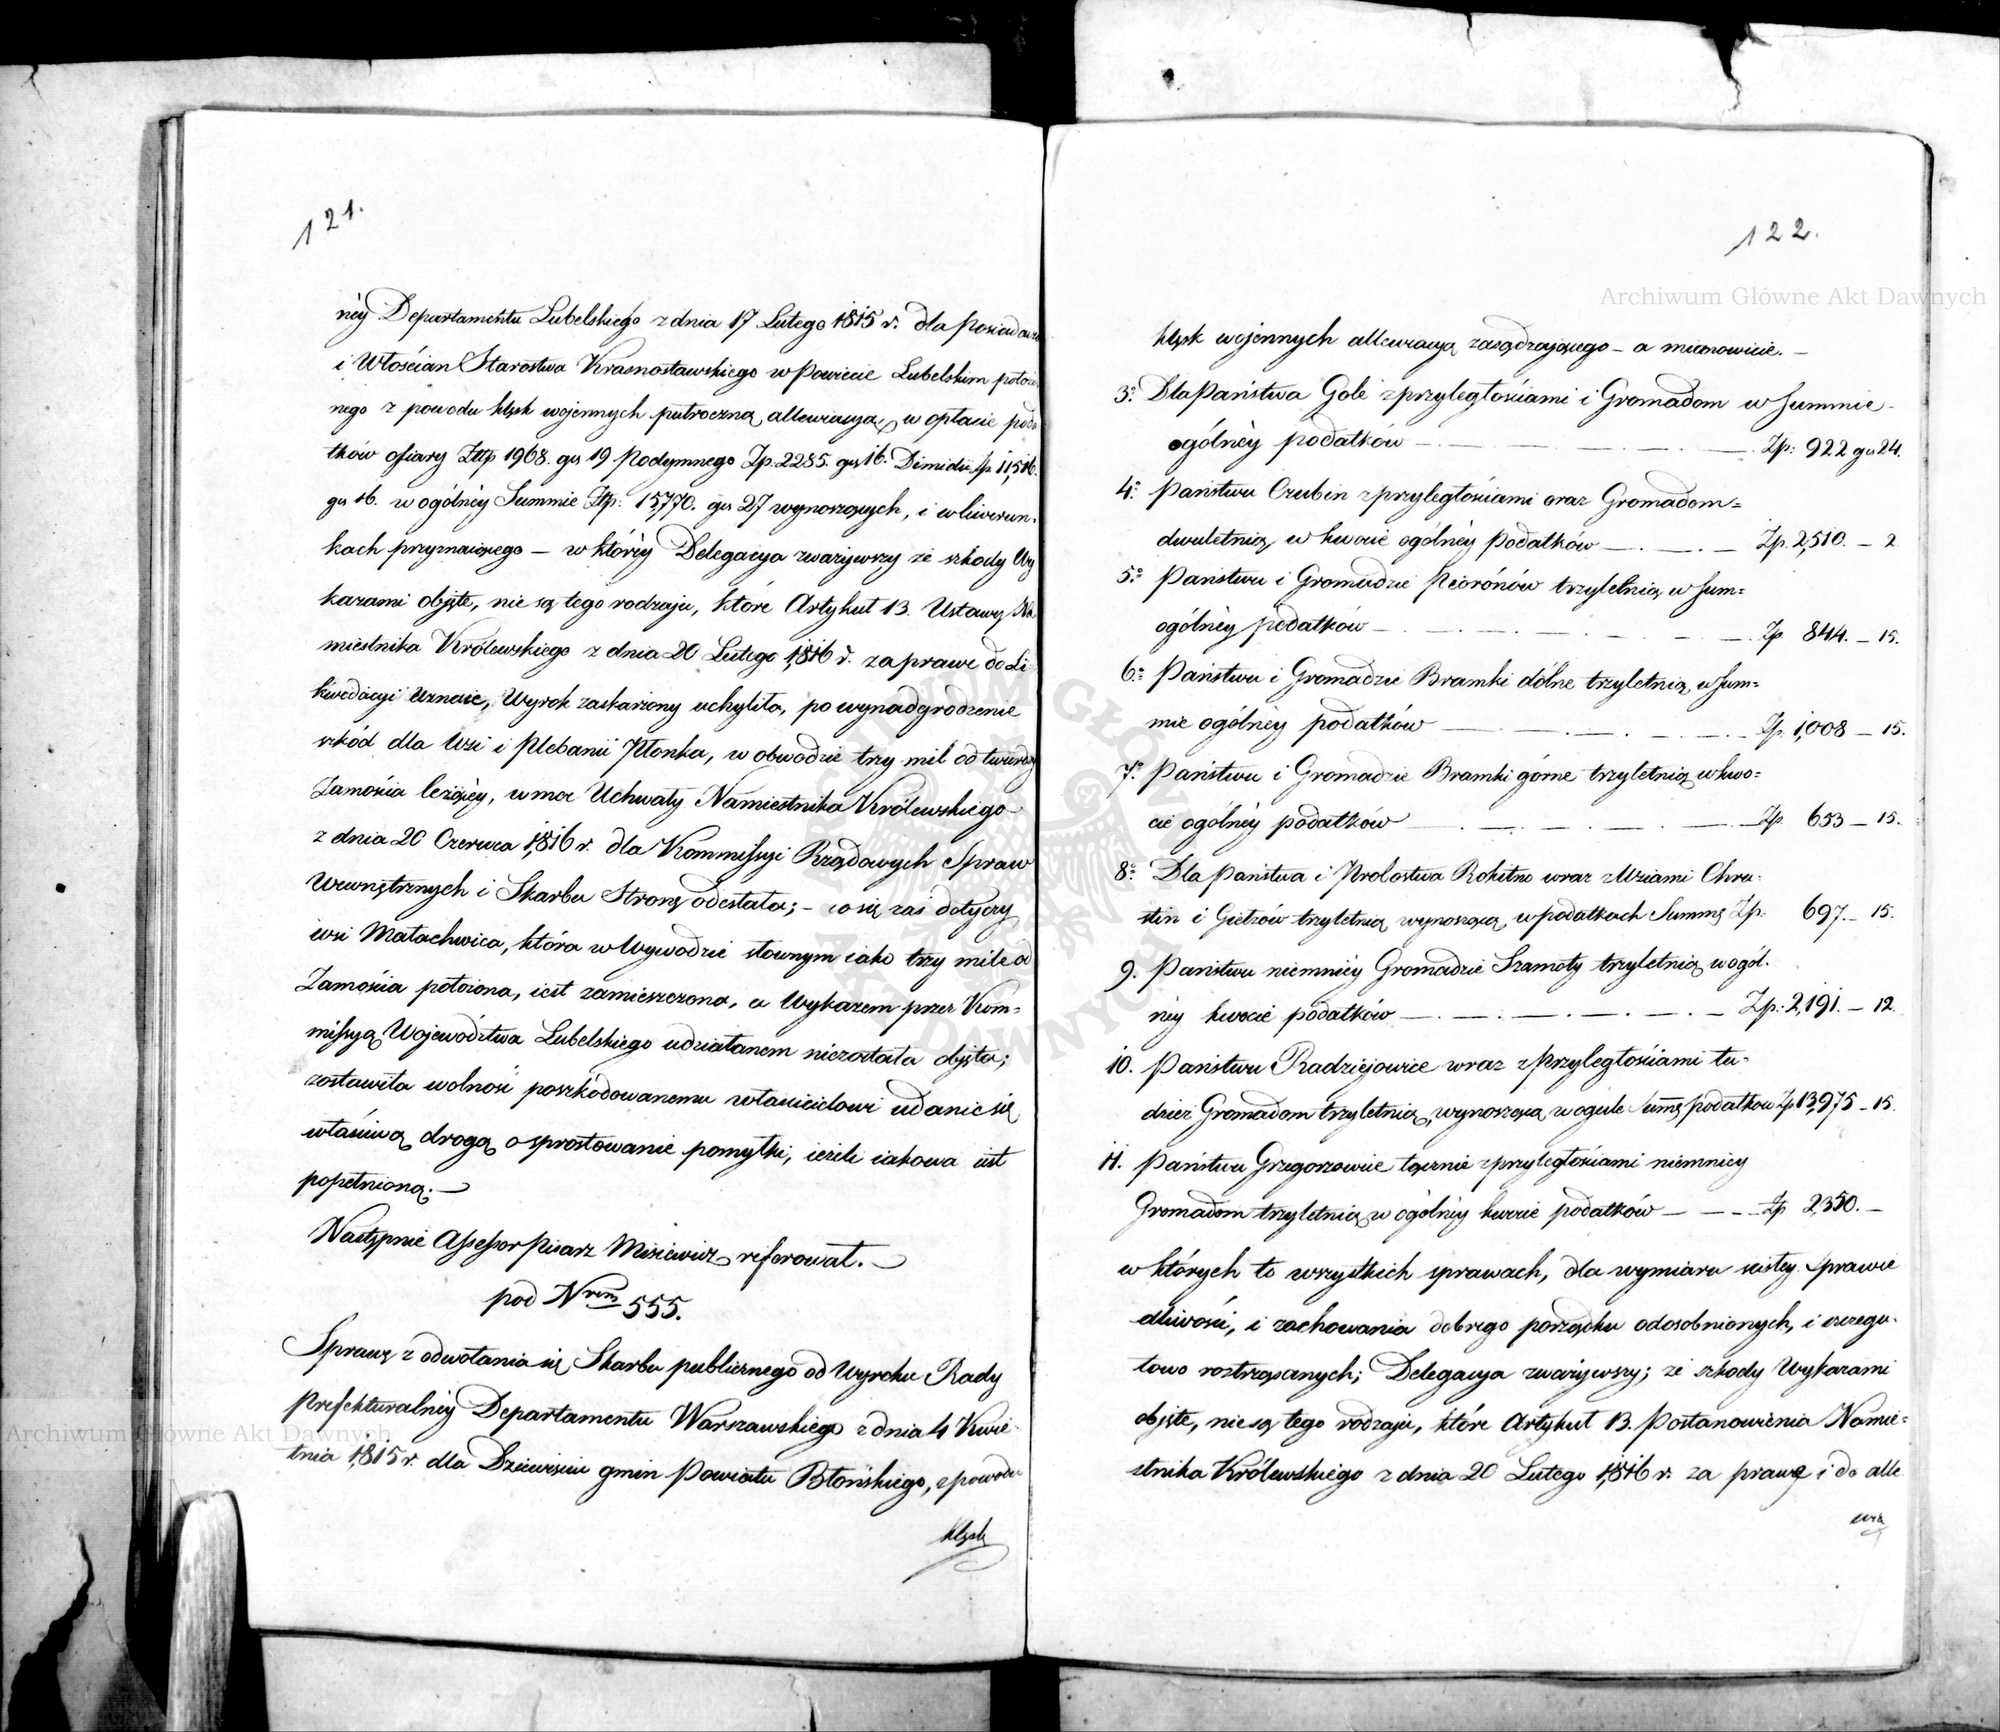 121.
néy Departamentu Lubelskiego z dnia 17 Lutego 1815 r. dla Posiadacza
i Włościan Starostwa Krasnostawskiego w Powiecie Lubelskim położo
nego z powodu klęsk wojennych pułroczną allewiacyą, w opłacie poda
tków ofiary Złłp 1968. grs 19 Podymnego Zp. 2285. grs 16. Dimidii Zp. 11,516.
grs 16. w ogólnéy Summie Złp: 15,770. grs 27 wynoszących, i w liwerun-
kach przyznaiącego — w któréy Delegacya zważywszy że szkody Wy
kazami objęte, nie są tego rodzaju, któré Artykuł 13. Ustawy Na
miestnika Królewskiego z dnia 20 Lutego 1816 r. za prawe do Li
kwidacyi uznaie, Wyrok zaskarżony uchyliła, po wynadgrodzenie
szkód dla Wsi i Plebanii Płonka, w obwodzie trzy mil od twierdzy
Zamościa leżącéy, w moc Uchwały Namiestnika Królewskiego
z dnia 20 Czerwca 1816 r. dla Kommissyi Rządowych Spraw
Wewnętrznych i Skarbu Stronę odesłała; - co się zaś dotyczy
wsi Małachwica, która w Wywodzie słownym iako trzy mile od
Zamościa położona, iest zamieszczona, a Wykazem przez Kom=
missyą Województwa Lubelskiego udziałanem niezostała objęta;
zostawiła wolność poszkodowanemu właścicielowi udanie się
właściwą drogą o sprostowanie pomyłki, ieżeli iakowa iest
popełnioną. —
Następnie Assessor Pisarz Misiewicz referował. —
pod Nrem 555.
Sprawę z odwołania się Skarbu publicznego od Wyroku Rady
Prefekturalnéy Departamentu Warszawskiego z dnia 4 Kwie-
tnia 1815 r. dla Dziewięciu gmin Powiatu Błońskiego, z powodu
klęsk
122.
klęsk wojennych allewiacyą zasądzającego — a mianowicie. —
3o. Dla Państwa Gole z przyległościami i Gromadom w Summie
ogólnéy podatków — Zp: 922 gr 24.
4o. Państwu Czubin z przyległościami oraz Gromadom=
dwuletnią w kwocie ogólnéy Podatków — Zp. 2,510. — 2
5o. Państwu i Gromadzie Pioronów trzyletnią w Sum=
ogólnéy podatków — Zp 844. — 15.
6o. Państwu i Gromadzie Bramki dólne trzyletnią w Sum=
mie ogólnéy podatków — Zp. 1,008 — 15.
7o. Państwu i Gromadzie Bramki górne trzyletnią w kwo=
cie ogólnéy podatków — Zp. 653 — 15.
8o. Dla Państwa i Probostwa Rokitno wraz z Wsiami Chru-
slin i Gielzów trzyletnią wynoszącą w podatkach Summę Zp. 697. — 15.
9. Państwu niemniéy Gromadzie Szamoty trzyletnią w ogól-
néy kwocie podatków — Zp: 2,191. — 12.
10. Państwu Radziejowice wraz z Przyległościami tu-
dzież Gromadom trzyletnią, wynoszącą w ogule Summę podatkow Zp 13,975 — 15.
11. Państwu Grzegorzewice łącznie z przyległościami niemniey
Gromadom trzyletnią w ogólnéy kwocie podatków — Zp 2,350. —
w których to wszystkich sprawach, dla wymiaru scisłey Sprawie
dliwości, i zachowania dobrego porządku odosobnionych, i szczegu-
łowo roztrząsanych; Delegacya zważywszy; że szkody Wykazami
objęte, nie są tego rodzaju, które Artykuł 13. Postanowienia Namie=
stnika Królewskiego z dnia 20 Lutego 1816 r. za prawe i do alle
wia
Archiwum Główne Akt Dawnych
Archiwum Główne Akt Dawnych
ARCHIWUM GŁÓWNE AKT DAWNYCH